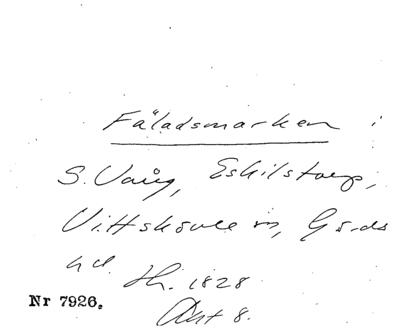 Fäladsmarken i
S. Vång, Eskilstorp,
Vittskövle sn, Gärds
hd. Lh. 1828
Akt 8.
Nr 7926.